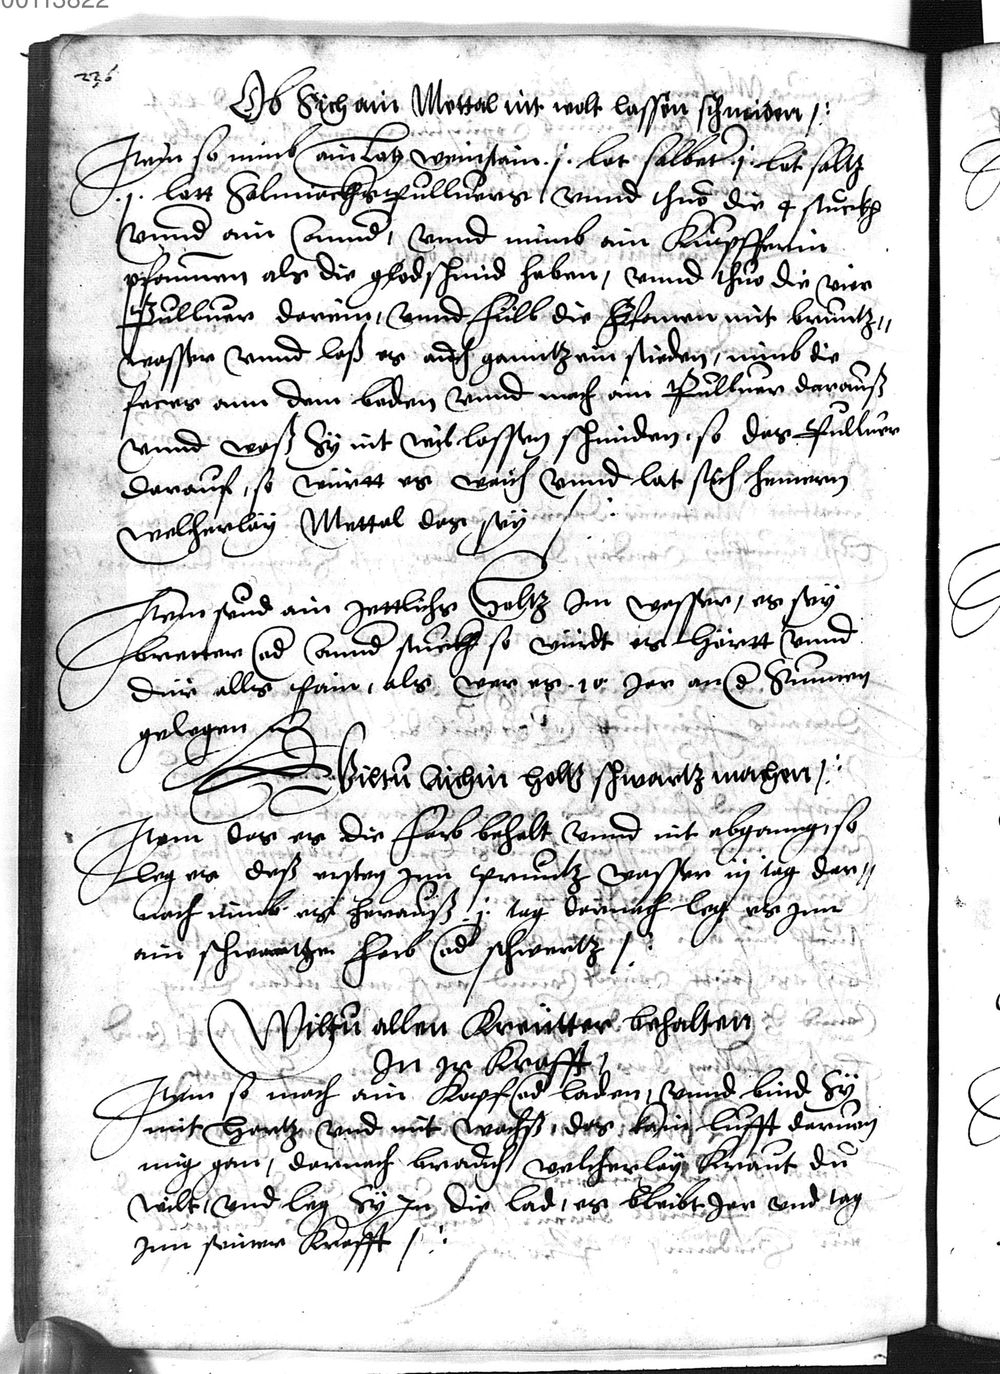 00113822
236
Ob Sich ain Mettal nit wolt lassen schneiden /:
Item so nimb ain Lotz weinstain .j. lot salbet .j. lot saltz
.j. lott Salmiachs Pulluers, vnnd thuo die 4 stuckh
vnnd ain annd, vnnd nimb ain Kupfferin
pfannen als die glodschmid haben, vnnd thuo die vier
Pulluer darein, vnnd füll die Pfannen mit bruntz„
wasser vnnd laß es auch ganntz ein sieden, nimb die
feces ann dem boden vnnd mach ain Pulluer darauß
vnnd waß Sy nit will lassen schniden, so das Pulluer
darauf, so württ es waich vnnd lat sich hemern
welcherlay Mettal das sey /:
Item seud ain jettlichs Holtz Im wasser, es sey
bretter od annd stuckh so würdt es hörtt vnnd
dür alls fain, als wer es 10 Jar an d Sunnen
gelegen
Wiltu Aichin holtz schwartz machen /:
Item das es die Farb behalt vnnd nit abganng, so
leg es deß ersten Inn Pruntz wasser iij tag dar„
nach nimb es herauß .j. tag darnach leg es Inn
ain schwartze Farb od schwertz /:
Wiltu allen Kreütter behalten
In Ir Krafft /
Item so mach ain Kopf od laden, vnnd bind Sy
mit Hartz vnd mit wachß, das kain lufft daruon
mig gan, darnach brauch welcherlay Kraut du
wilt, vnd leg Sy In die lad, es bleibt Jar vnd tag
Inn seiner Krafft /: